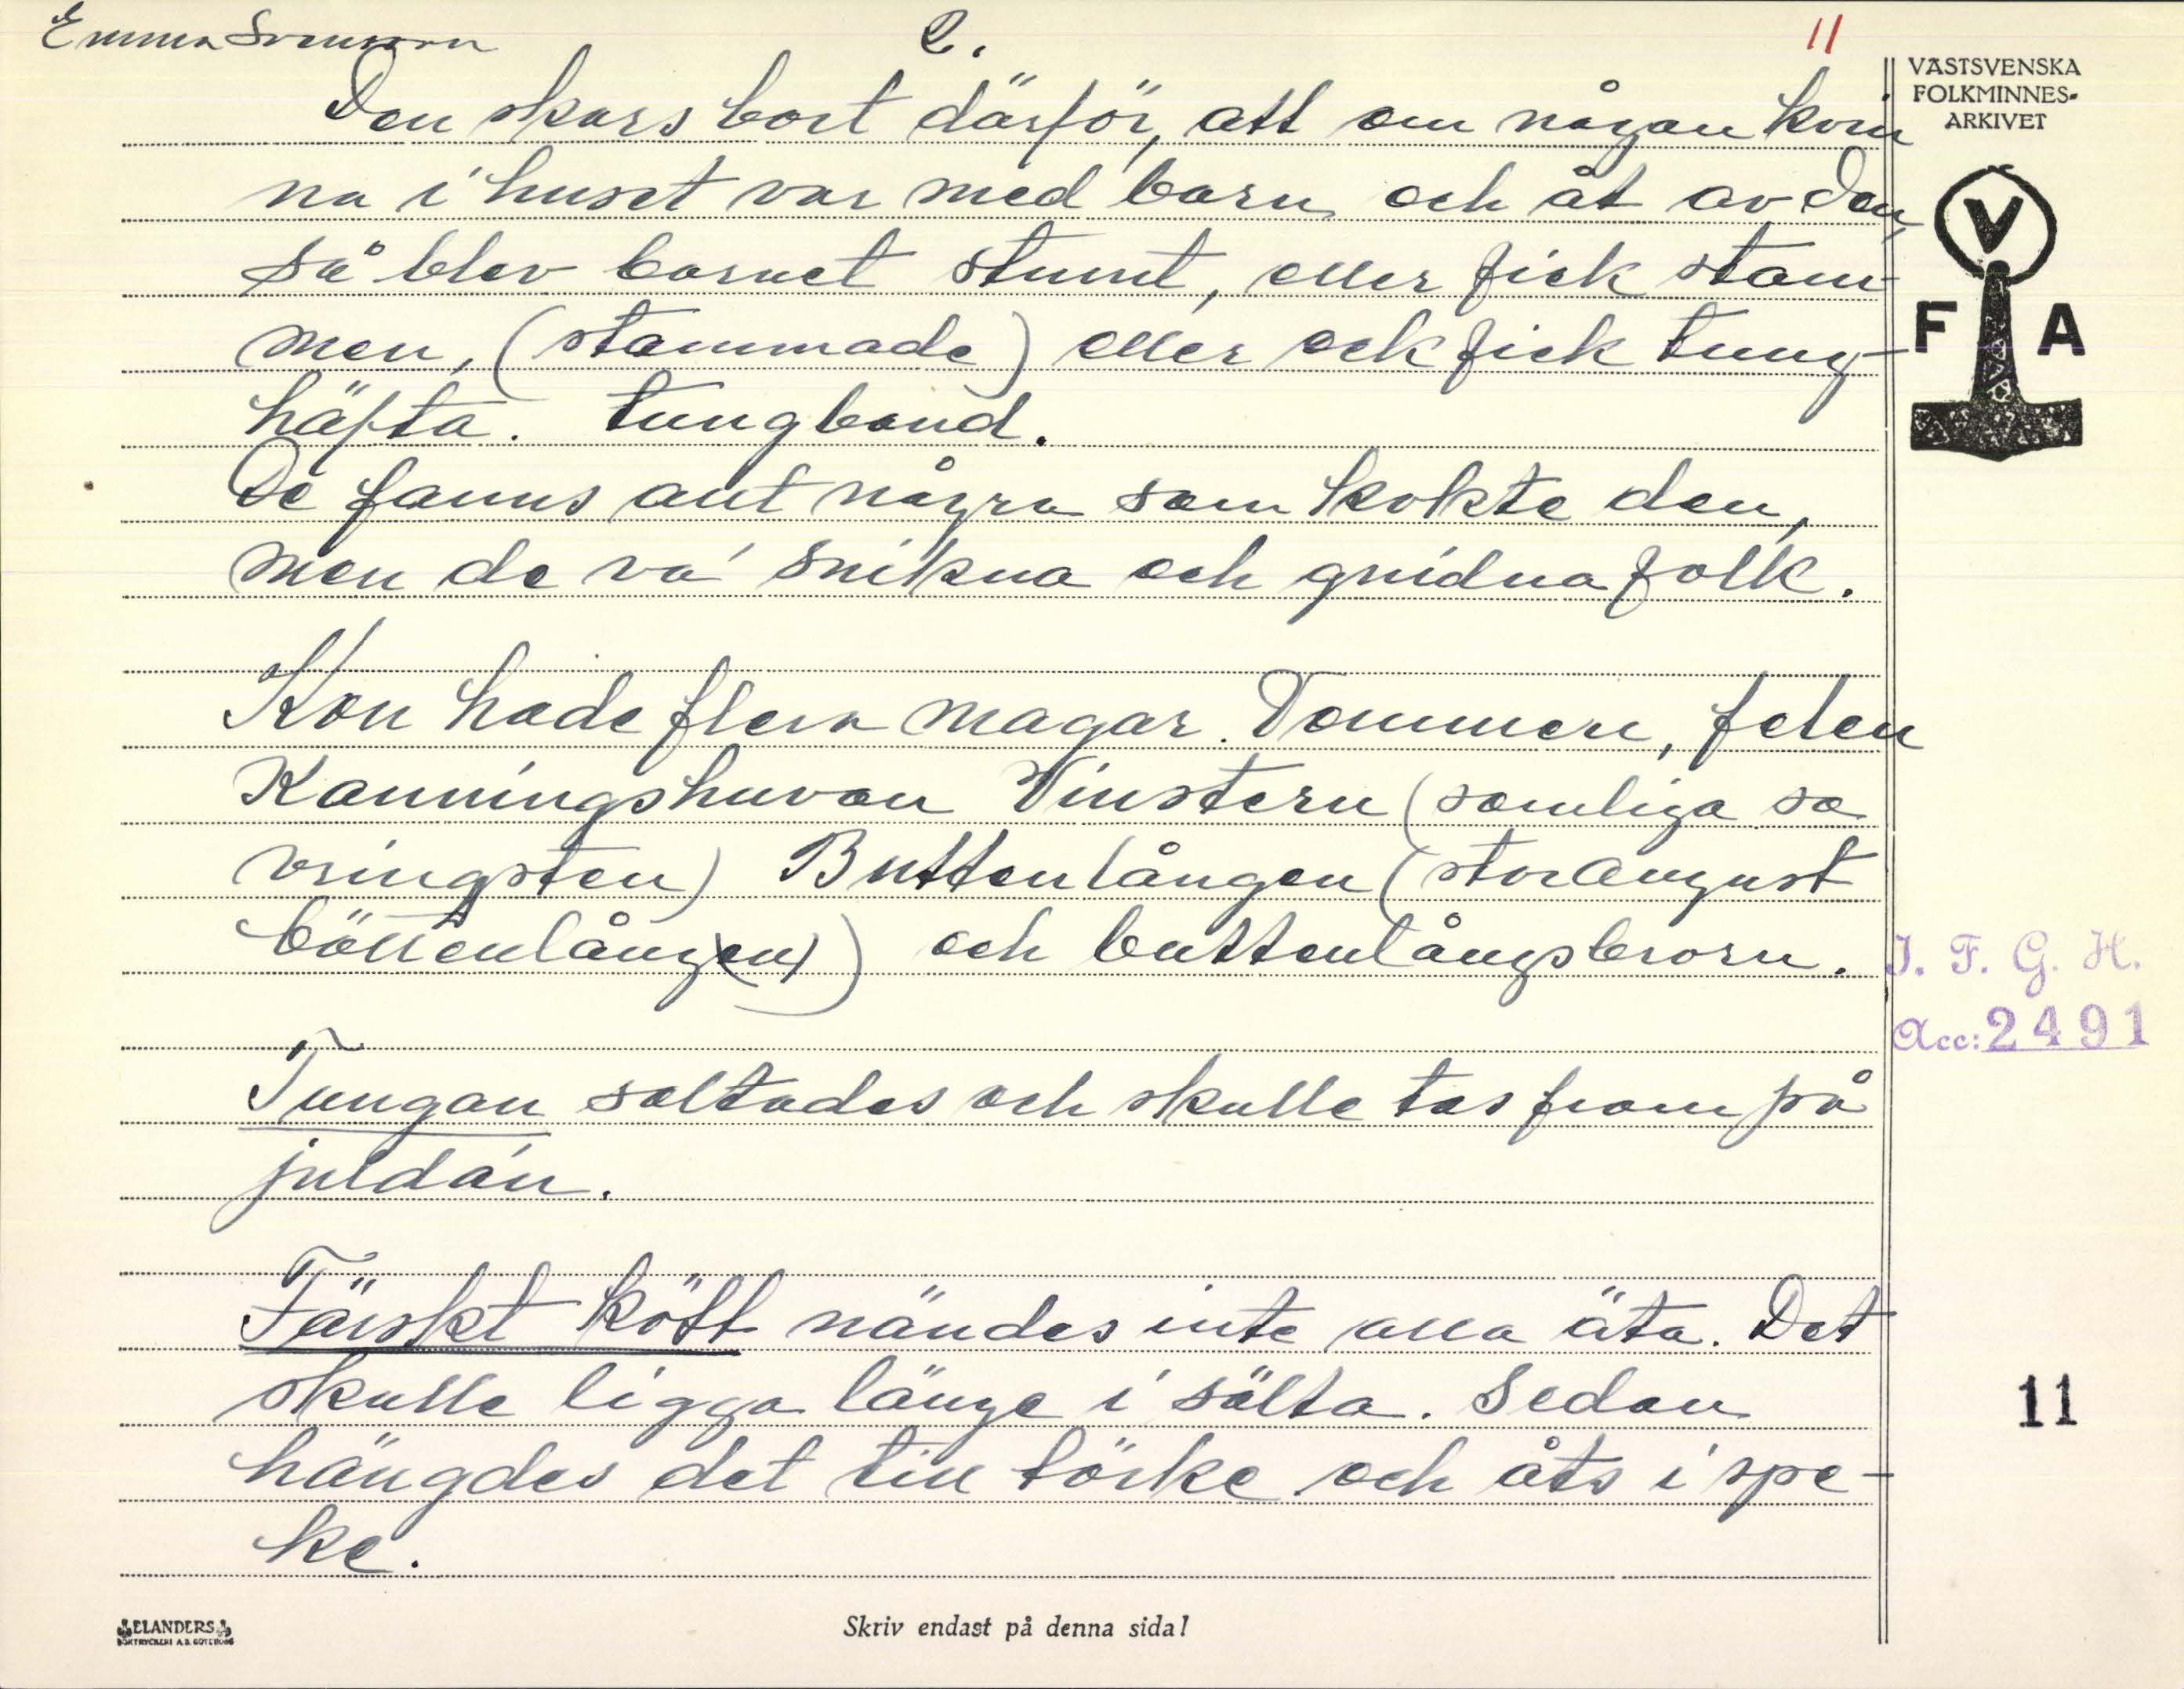 Emma Svensson 2. 11
Den skars bort därför, att om någon kvin
na i huset var med barn och åt av den,
så blev barnet stumt, eller fick stam-
men, (stammade) eller ock fick tung-
häfta. tungband.
De fanns ant några som kokte den,
men de va' snikna och gnidna folk.
Kon hade flera magar. Vommen, felen
Kanningshuvan Vinstern (somliga sa
vringsten) Buttenlången (storaugust
böttenlång(en)) och buttenlångsbrorn.
Tungan saltades och skulle tas fram på
juldán.
Färskt kött nändes inte alla äta. Det
skulle ligga länge i sälta. Sedan
hängdes det till törke och åts i spe-
ke.
VÄSTSVENSKA
FOLKMINNES-
ARKIVET
V
F A
I. F. G. H.
Acc: 2491
11
ELANDERS
BOKTRYCKERI A.B. GÖTEBORG
Skriv endast på denna sida!